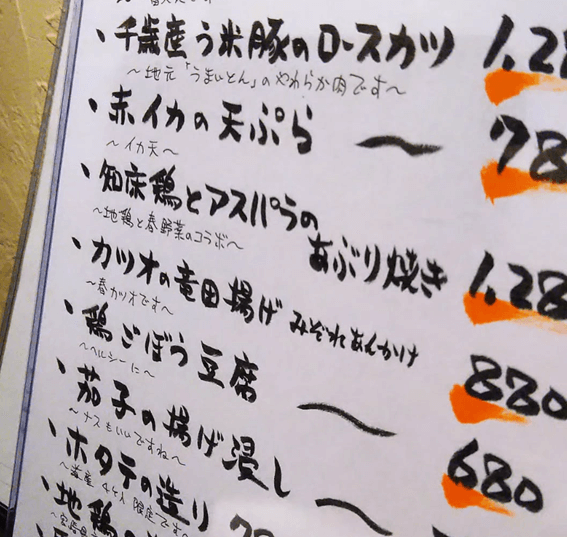 ・千歳産う米豚のロースカツ 1,28
～地元「うまいとん」のやわらか肉です～
・赤イカの天ぷら ～ 78
～イカ天～
・知床鶏とアスパラの
あぶり焼き 1,28
～地鶏と春野菜のコラボ～
・カツオの竜田揚げ みぞれあんかけ 880
～春カツオです～
・鶏ごぼう豆腐 ～ 680
～ヘルシーに～
・茄子の揚げ浸し ～
～ナスもいいですね～
・ホタテの造り 78
限定です～
・地鶏の